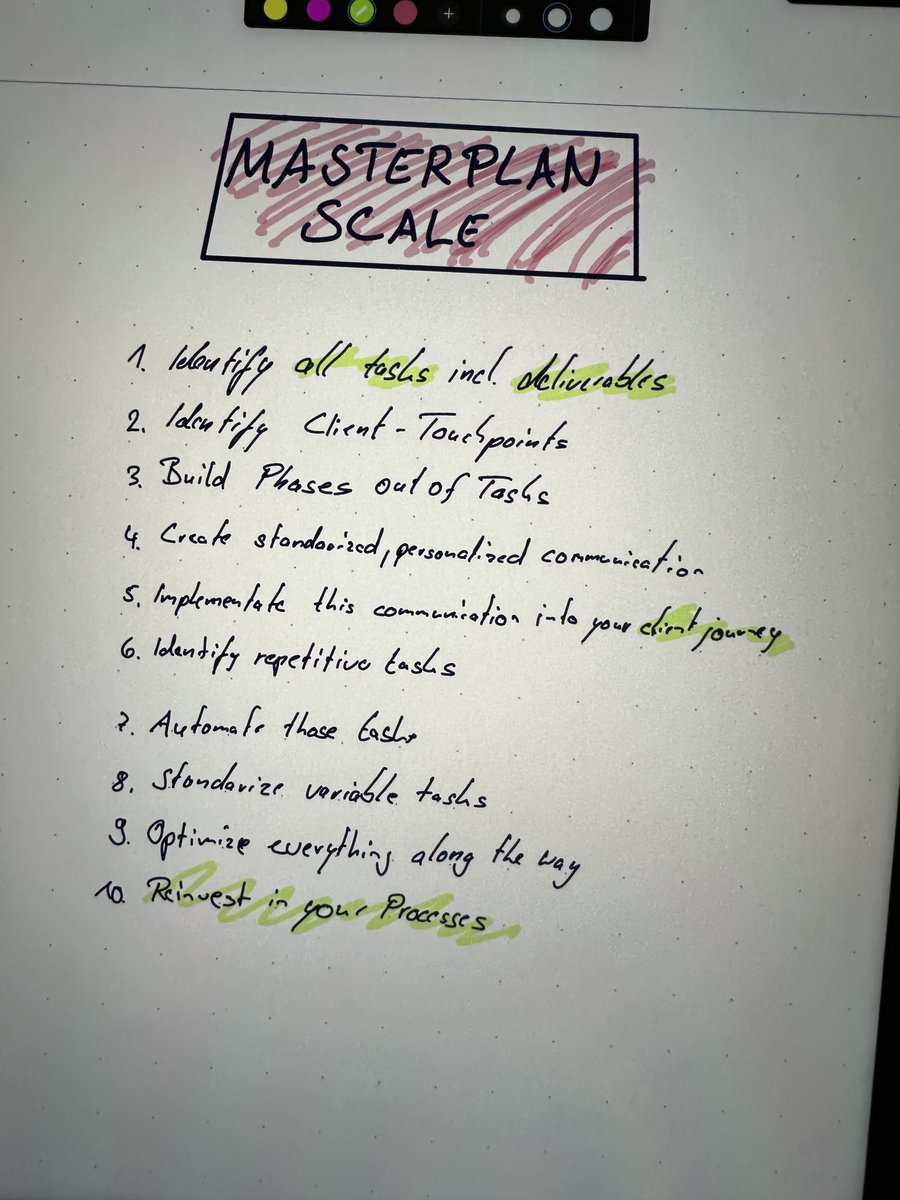 MASTERPLAN
SCALE
1. Identify all tasks incl. deliverables
2. Identify Client-Touchpoints
3. Build Phases out of Tasks
4. Create standarized, personalized communication
5. Implementate this communication into your client journey
6. Identify repetitive tasks
7. Automate those tasks
8. Standarize variable tasks
9. Optimize everything along the way
10. Reinvest in your Processes